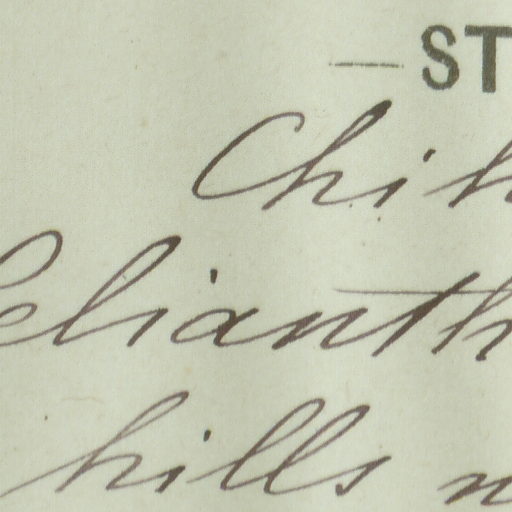 — ST
Chih
elianth
hills n